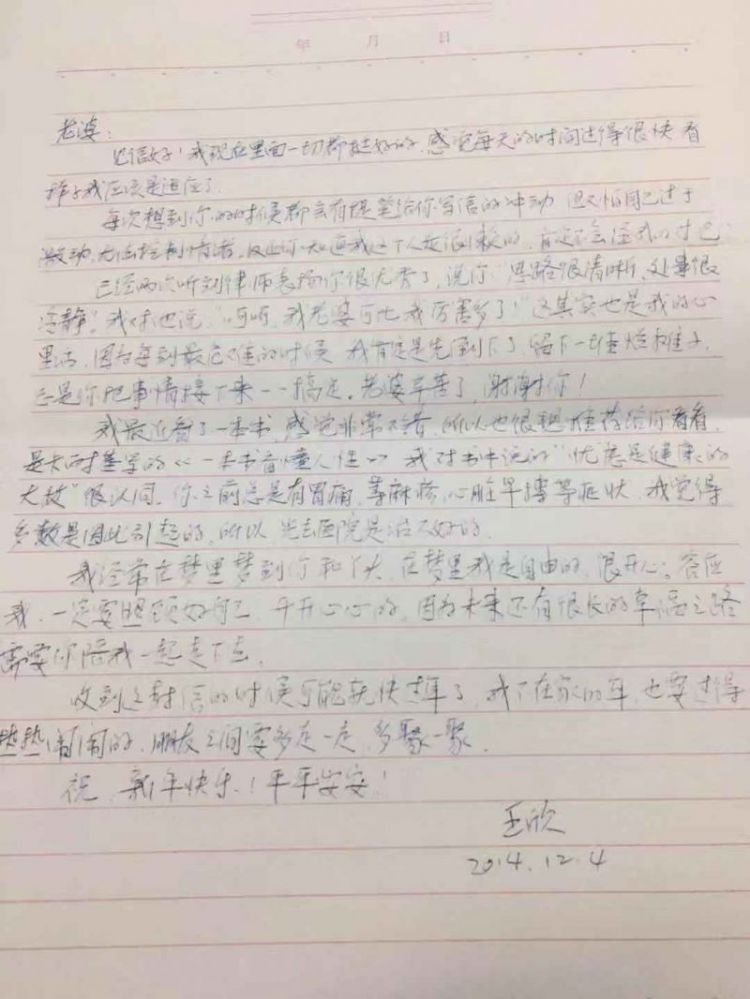 年 月 日
老婆：
见信好！我现在里面一切都挺好的，感觉每天的时间过得很快 看
样子我应该是适应了。
每次想到你的时候都会有提笔给你写信的冲动 但又怕自己过于
激动，无法控制情绪，反正你知道我这个人挺很懒的，肯定不会怪我的对吧
已经两次听刘律师表扬你很优秀了，说你"思路很清晰，处事很
冷静"。我对他说："呵呵，我老婆可比我厉害多了"这其实也是我的心
里话，因为每到最危难的时候 我肯定是先倒下了，留下一堆烂摊子，
总是你把事情接下来一一搞定。老婆辛苦了，谢谢你！
我最近看了一本书，感觉非常不错，所以也很想推荐给你看看，
是卡耐基写的《一本书看懂人性》我对书中说的"忧虑是健康的
大敌"很认同，你之前总是有胃痛，荨麻疹，心脏早搏等症状，我觉得
多数是因此引起的，所以光去医院是治不好的。
我经常在梦里梦到你和丫头，在梦里我是自由的，很开心。答应
我，一定要照顾好自己，开开心心的，因为未来还有很长的幸福之路
需要你陪我一起走下去。
收到这封信的时候可能就快过年了，我不在家的年，也要过得
热热闹闹的，朋友之间要多走一走，多聚一聚。
祝，新年快乐！平平安安！
王欣
2014.12.4